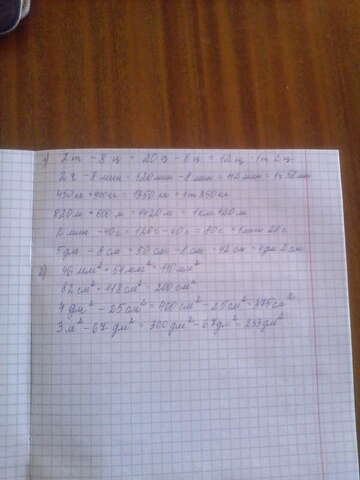 1) 2 т - 8 ц = 20 ц - 8 ц = 12 ц = 1т 2 ц
2 ч - 8 мин = 120 мин - 8 мин = 112 мин = 1ч 52 мин
450 кг + 900 кг = 1350 кг = 1 т 350 кг
820 м + 600 м = 1420 м = 1 км 420 м
2 мин - 40 с = 120 с - 40 с = 80 с = 1 мин 20 с
5 дм - 8 см = 50 см - 8 см = 42 см = 4 дм 2 см
2) 46 мм² + 64 мм² = 110 мм²
82 см² + 118 см² = 200 см²
4 дм² - 25 см² = 400 см² - 25 см² = 375 см²
3 м² - 67 дм² = 300 дм² - 67 дм² = 233 дм²